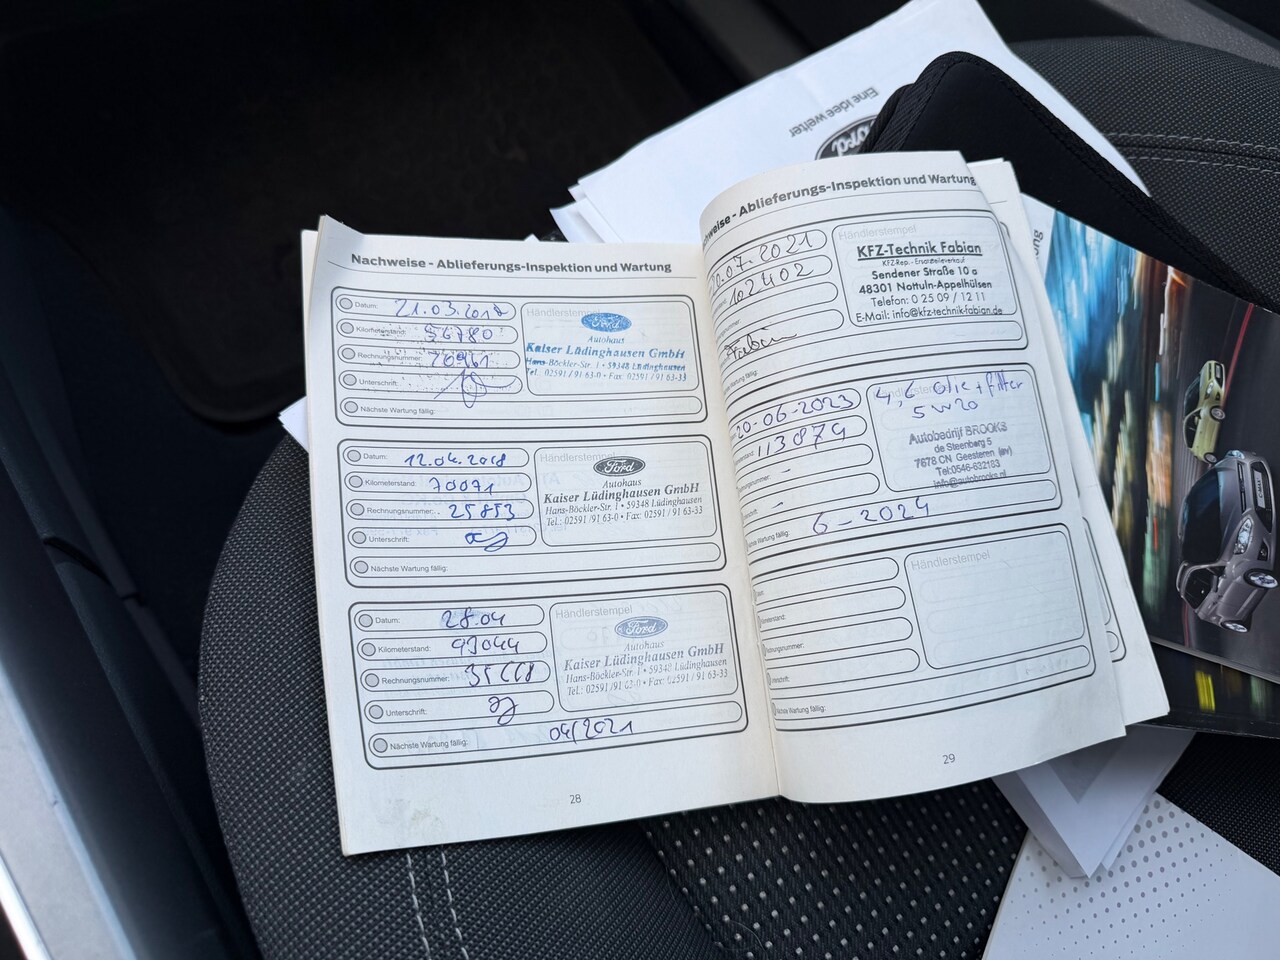 Eine Idee weiter
Ford
Nachweise - Ablieferungs-Inspektion und Wartung
Datum:
Kilometerstand: 56780
Rechnungsnummer:
Unterschrift:
Nächste Wartung fällig:
Händlerstempel
Ford
Autohaus
Kaiser Lüdinghausen GmbH
Hans-Böckler-Str. 1 • 59348 Lüdinghausen
Tel.: 02591 / 91 63-0 • Fax: 02591 / 91 63-33
Datum: 12.04.2018
Kilometerstand: 70071
Rechnungsnummer: 25853
Unterschrift:
Nächste Wartung fällig:
Händlerstempel
Ford
Autohaus
Kaiser Lüdinghausen GmbH
Hans-Böckler-Str. 1 • 59348 Lüdinghausen
Tel.: 02591 / 91 63-0 • Fax: 02591 / 91 63-33
Datum: 28.04
Kilometerstand: 93044
Rechnungsnummer:
Unterschrift:
Nächste Wartung fällig: 04/2021
Händlerstempel
Ford
Autohaus
Kaiser Lüdinghausen GmbH
Hans-Böckler-Str. 1 • 59348 Lüdinghausen
Tel.: 02591 / 91 63-0 • Fax: 02591 / 91 63-33
28
weise - Ablieferungs-Inspektion und Wartung
0.07.2021
102402
Fabian
Wartung fällig:
Händlerstempel
KFZ-Technik Fabian
KFZ-Rep. - Ersatzteilverkauf
Sendener Straße 10 a
48301 Nottuln-Appelhülsen
Telefon: 0 25 09 / 12 11
E-Mail: info@kfz-technik-fabian.de
20-06-2023
113874
-
-
Wartung fällig: 6-2024
4,6 olie + filter
5W20
Autobedrijf BROOKS
de Steenberg 5
7678 CN Geesteren (ov)
Tel:0546-632183
info@autobrooks.nl
Händlerstempel
Nächste Wartung fällig:
29